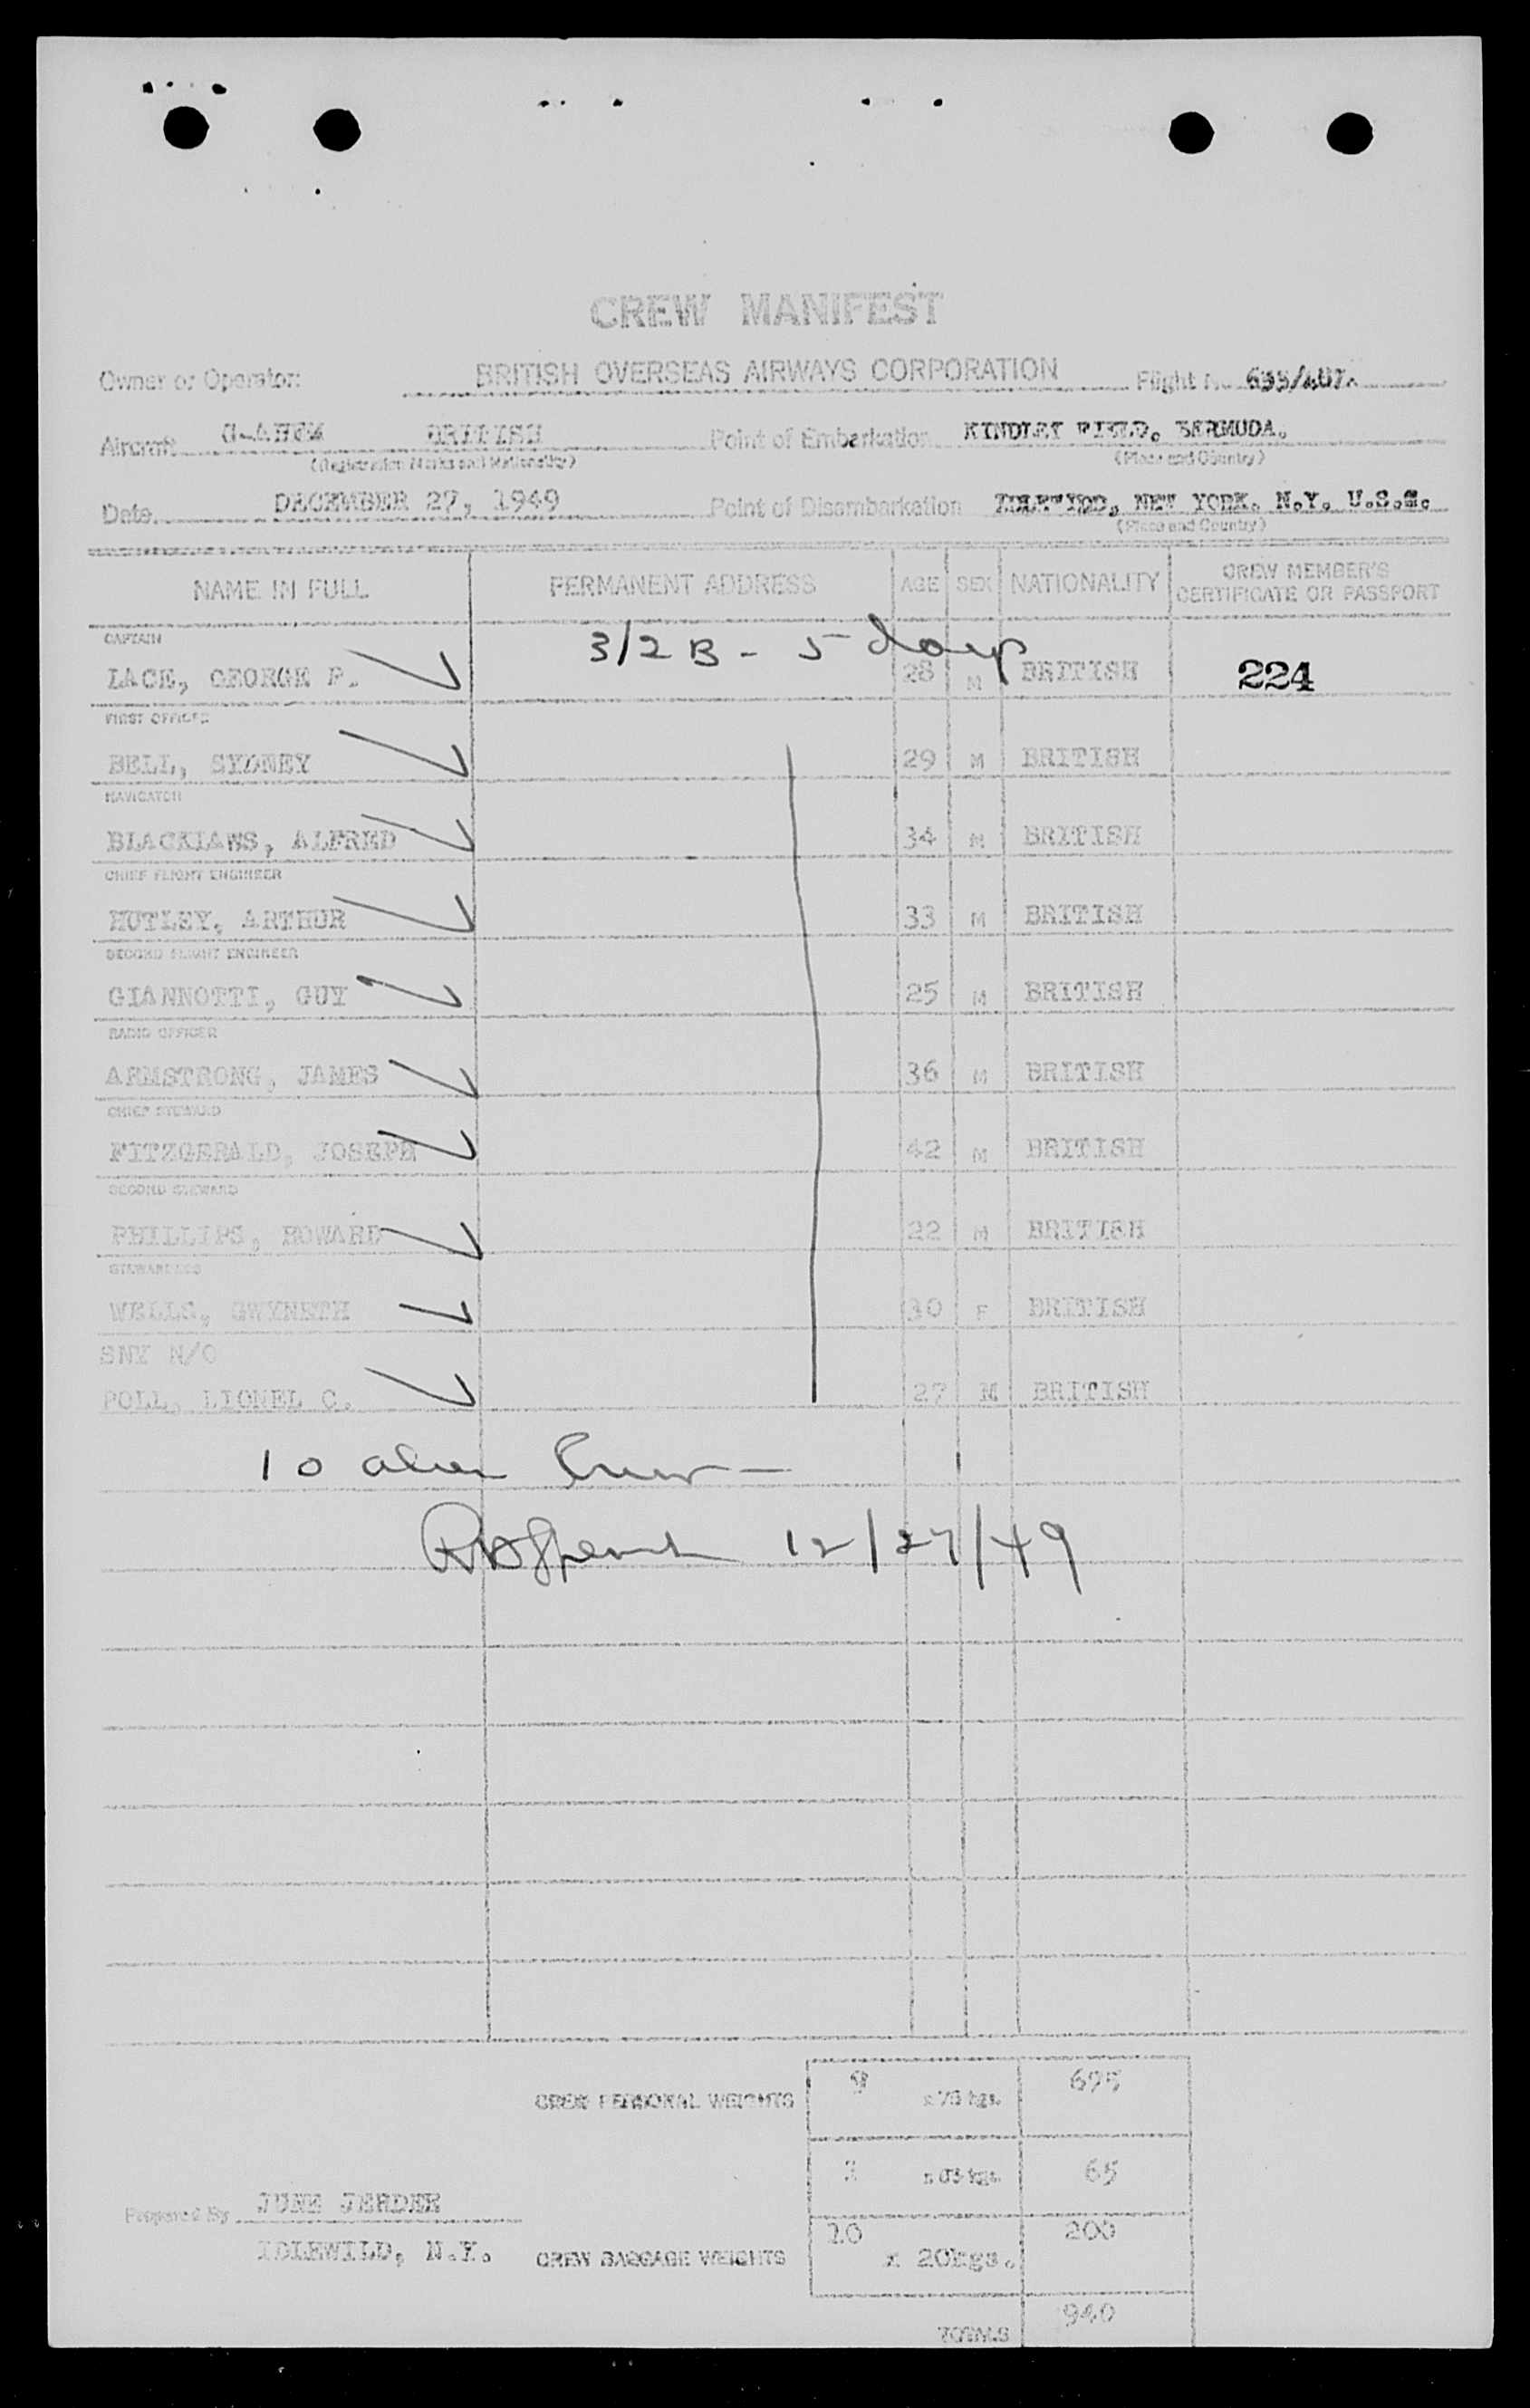 CREW MANIFEST
Owner or Operator: BRITISH OVERSEAS AIRWAYS CORPORATION Flight
Aircraft BRITISH Point of Embarkation KINDLEY FIELD, BERMUDA.
(Registration Marks and Nationality) (Place and Country)
Date DECEMBER 27, 1949 Point of Disembarkation NEW YORK. N.Y. U.S.A.
(Place and Country)
NAME IN FULL PERMANENT ADDRESS AGE SEX NATIONALITY CREW MEMBER'S CERTIFICATE OR PASSPORT
CAPTAIN 3/2 B - 5 days
LACE, GEORGE P. 28 M BRITISH 224
FIRST OFFICER
BELL, SYDNEY 29 M BRITISH
NAVIGATOR
BLACKLAWS, ALFRED 34 M BRITISH
CHIEF FLIGHT ENGINEER
HUTLEY, ARTHUR 33 M BRITISH
SECOND FLIGHT ENGINEER
GIANNOTTI, GUY 25 M BRITISH
RADIO OFFICER
ARMSTRONG, JAMES 36 M BRITISH
CHIEF STEWARD
FITZGERALD, JOSEPH 42 M BRITISH
SECOND STEWARD
PHILLIPS, HOWARD 22 M BRITISH
STEWARDESS
WELLS, GWYNETH 30 F BRITISH
SNY N/O
POLL, LIONEL C. 27 M BRITISH
10 alien Crew -
12/27/49
CREW PERSONAL WEIGHTS 9 x 75 kgs. 675
x 65 kgs. 65
Prepared By JUNE
IDLEWILD, N.Y. CREW BAGGAGE WEIGHTS 10 x 20kgs. 200
TOTALS 940